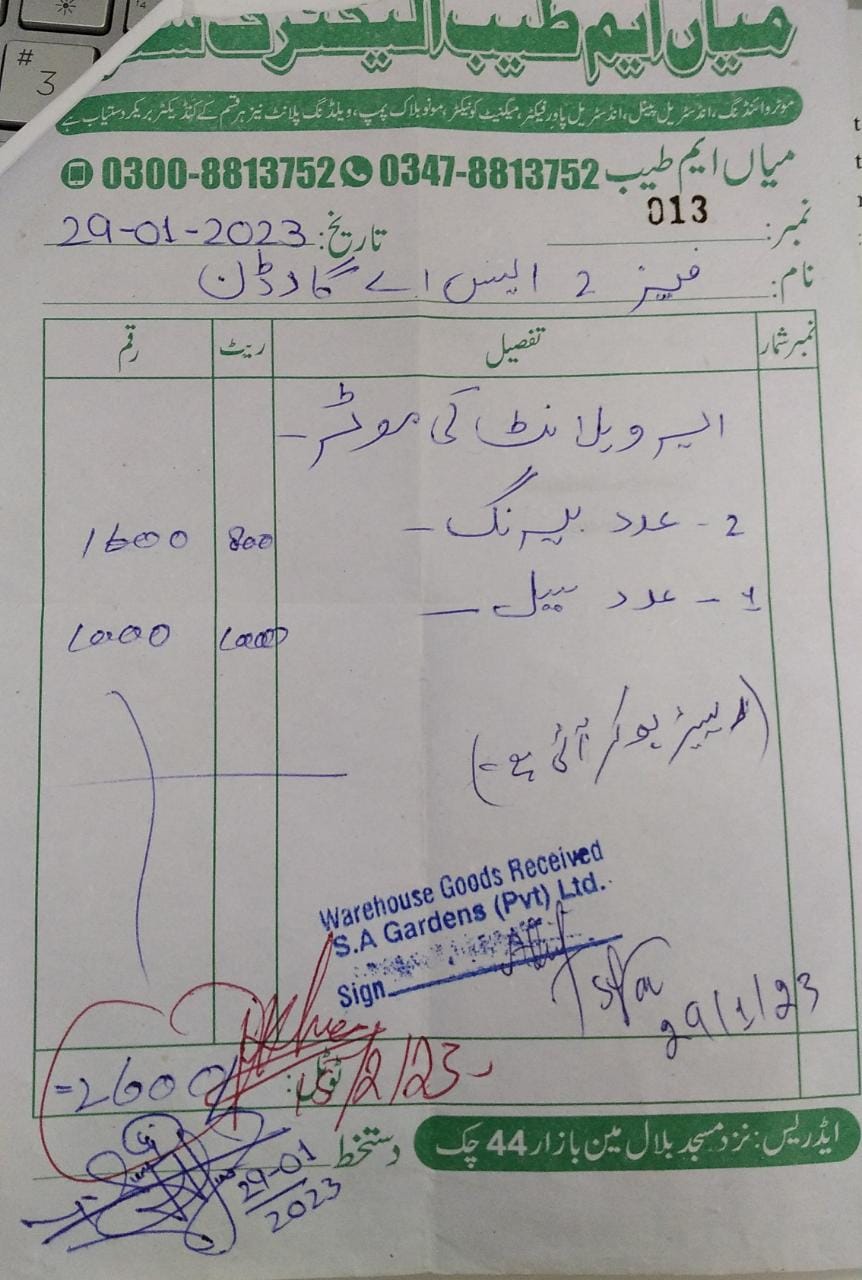 میاں ایم طیب الیکٹرک
موٹر وائنڈنگ، انڈسٹریل پینل، انڈسٹریل پاور فیکٹر، میگنیٹ کونیکٹر، مونو بلاک پمپ، ویلڈنگ پلانٹ نیز ہر قسم کے کنڈیکٹر بریکر دستیاب ہے
میاں ایم طیب 0347-8813752 0300-8813752
نمبر: 013 تاریخ: 29-01-2023
نام: فیز 2 ایس اے گارڈن
نمبر شمار تفصیل ریٹ رقم
ایرو پلانٹ کی موٹر -
2 - عدد بیرنگ - 800 1600
1 - عدد سیل - 1000 1000
(ریپیئر ہو کر آئی ہے -)
Warehouse Goods Received
S.A Gardens (Pvt) Ltd.
Sign
29/1/23
ٹوٹل: =2600/
15/2/23
دستخط
29-01
2023
ایڈریس: نزد مسجد بلال مین بازار 44 چک
# 3